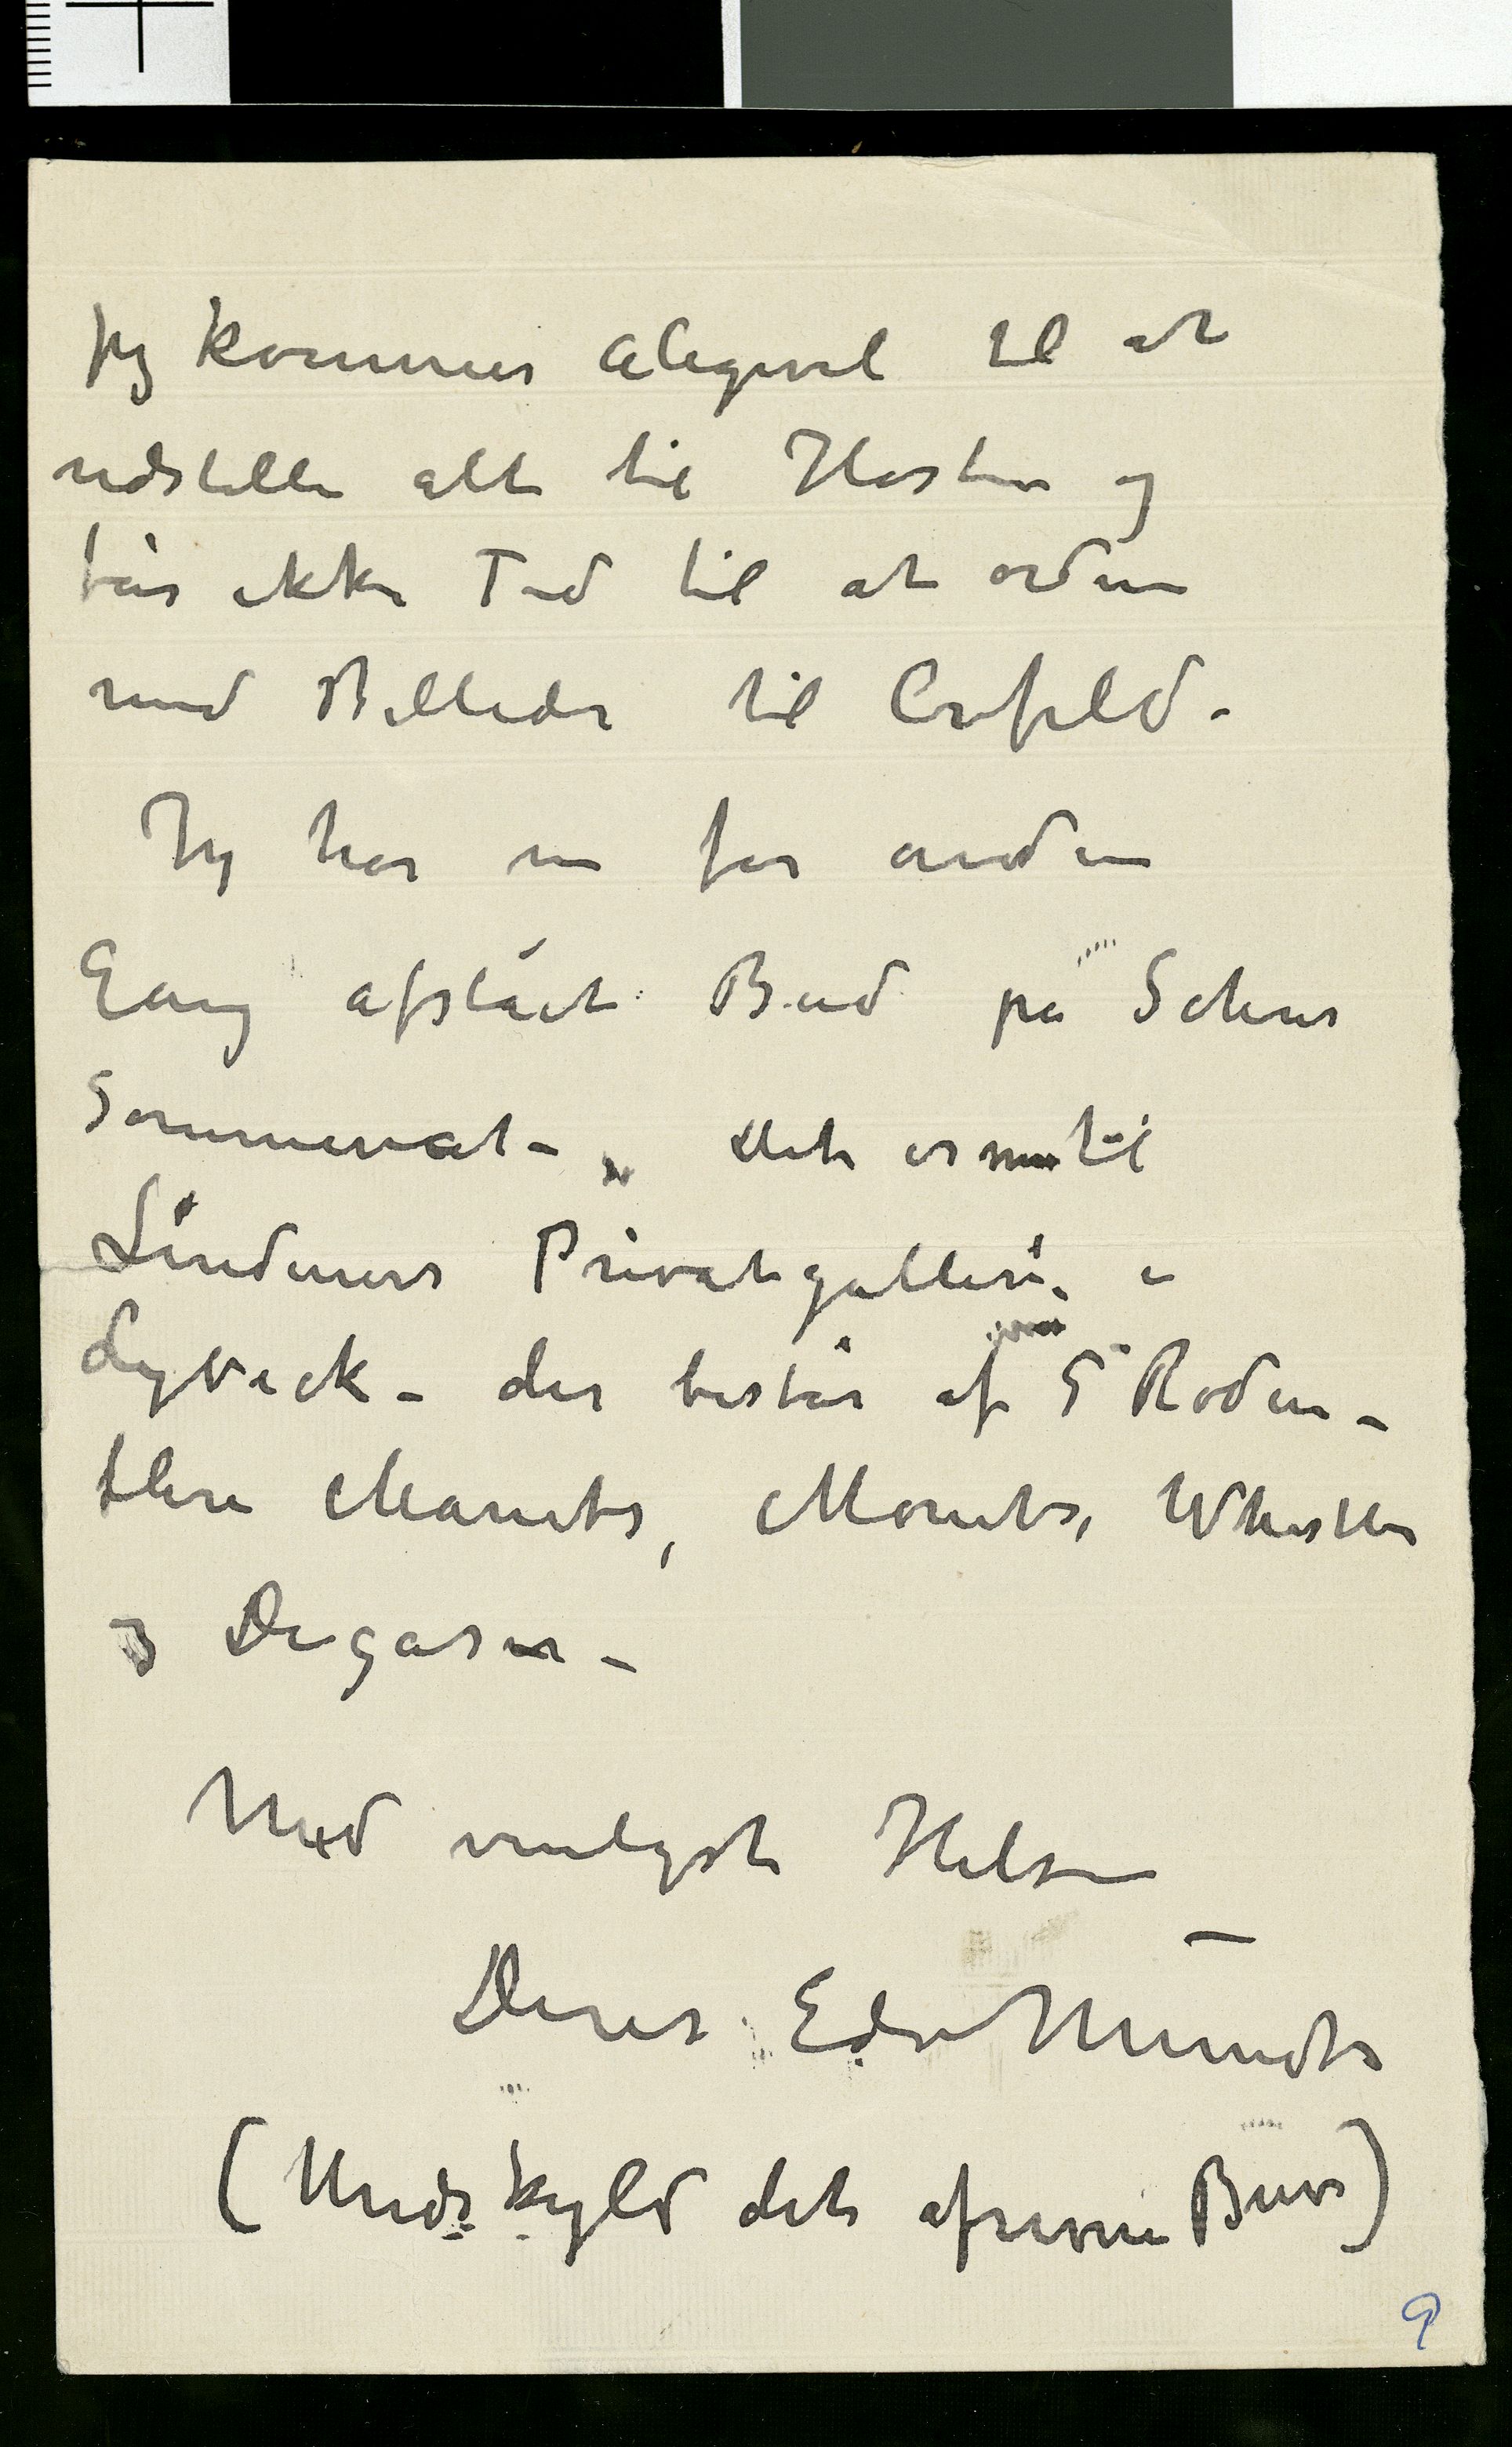 Jeg kommer aligevel til at
udstille alt til Høsten og
får ikke Tid til at ordne
med Billeder til Crefeld.
Jeg har nu for anden
Gang afslået Bud på Schous
Sommernat – Det er nu til
Lindeners Privatgalleri i
Lybeck – der består af 5 Rodin –
flere Manets, Monets, Whistler
og Degaser –
Med venligste Hilsen
Deres Edv Munch
(Undskyld det afrevne Brev)
9